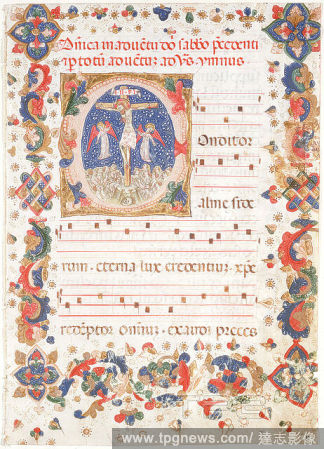 Dñica in adventu dõ sabbo precedenti
et p totũ adventũ ad vs ymnus
onditor
alme side
rum . eterna lux credentiuz . xpe
redemptor omniuz . exaudi preces
www.tpgnews.com/ 達志影像